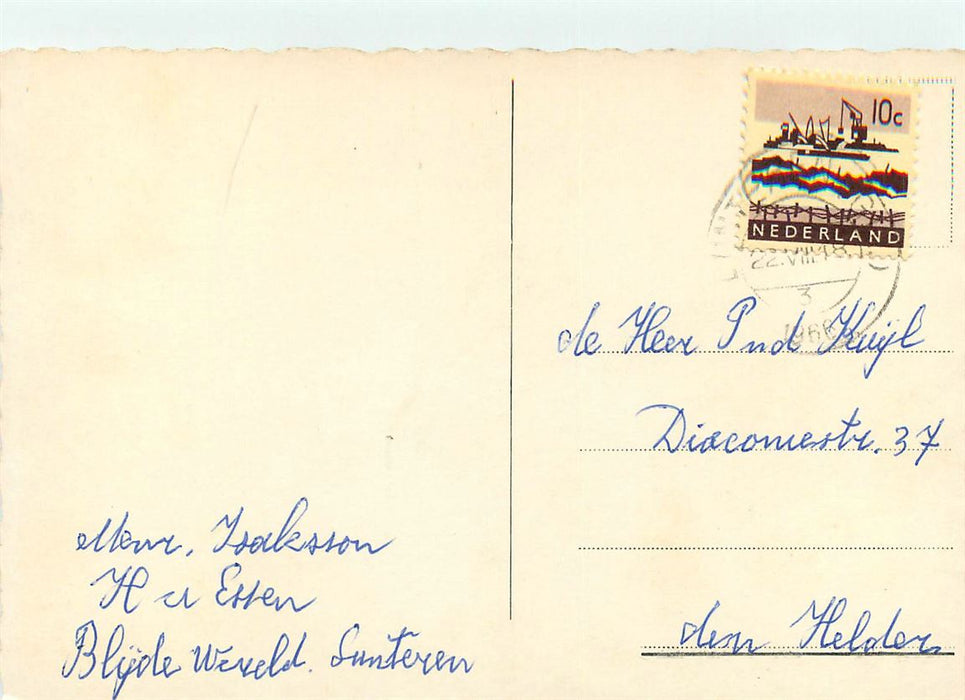 10c
NEDERLAND
22.VIII.18
3
1966
de Heer P vd Kuijl
Diaconiestr. 37
den Helder
Mevr. Isaksson
H v Essen
Blijde Wereld. Lunteren